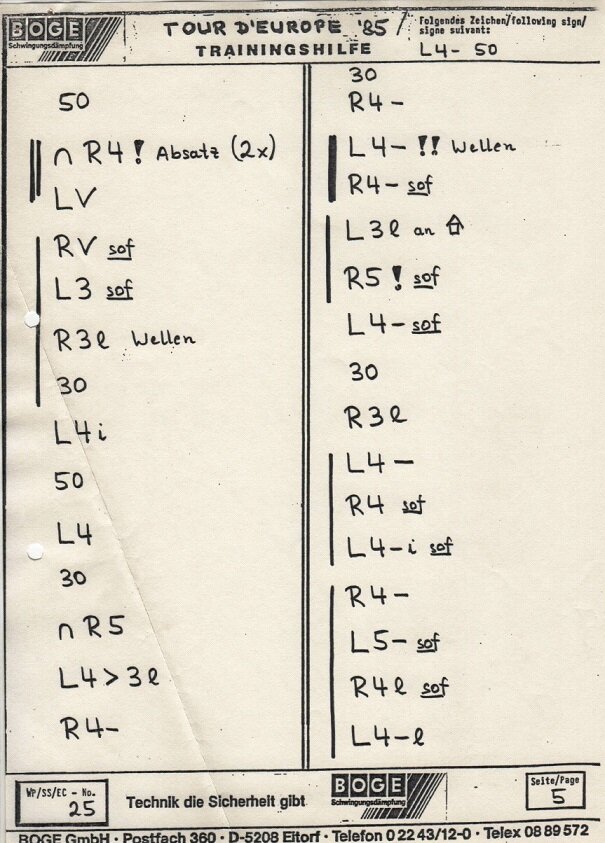 BOGE
Schwingungsdämpfung
TOUR D'EUROPE '85/
TRAININGSHILFE
Folgendes Zeichen/following sign/
signe suivant:
L4- 50
50
∩ R4! Absatz (2x)
LV
RV sof
L3 sof
R3l Wellen
30
L4i
50
L4
30
∩ R5
L4>3l
R4-
30
R4-
L4- !! Wellen
R4- sof
L3l an ⌂
R5! sof
L4- sof
30
R3l
L4-
R4 sof
L4-i sof
R4-
L5- sof
R4l sof
L4-l
WP/SS/EC - No.
25
Technik die Sicherheit gibt
BOGE
Schwingungsdämpfung
Seite/Page
5
BOGE GmbH · Postfach 360 · D-5208 Eitorf · Telefon 0 22 43/12-0 · Telex 08 89 572